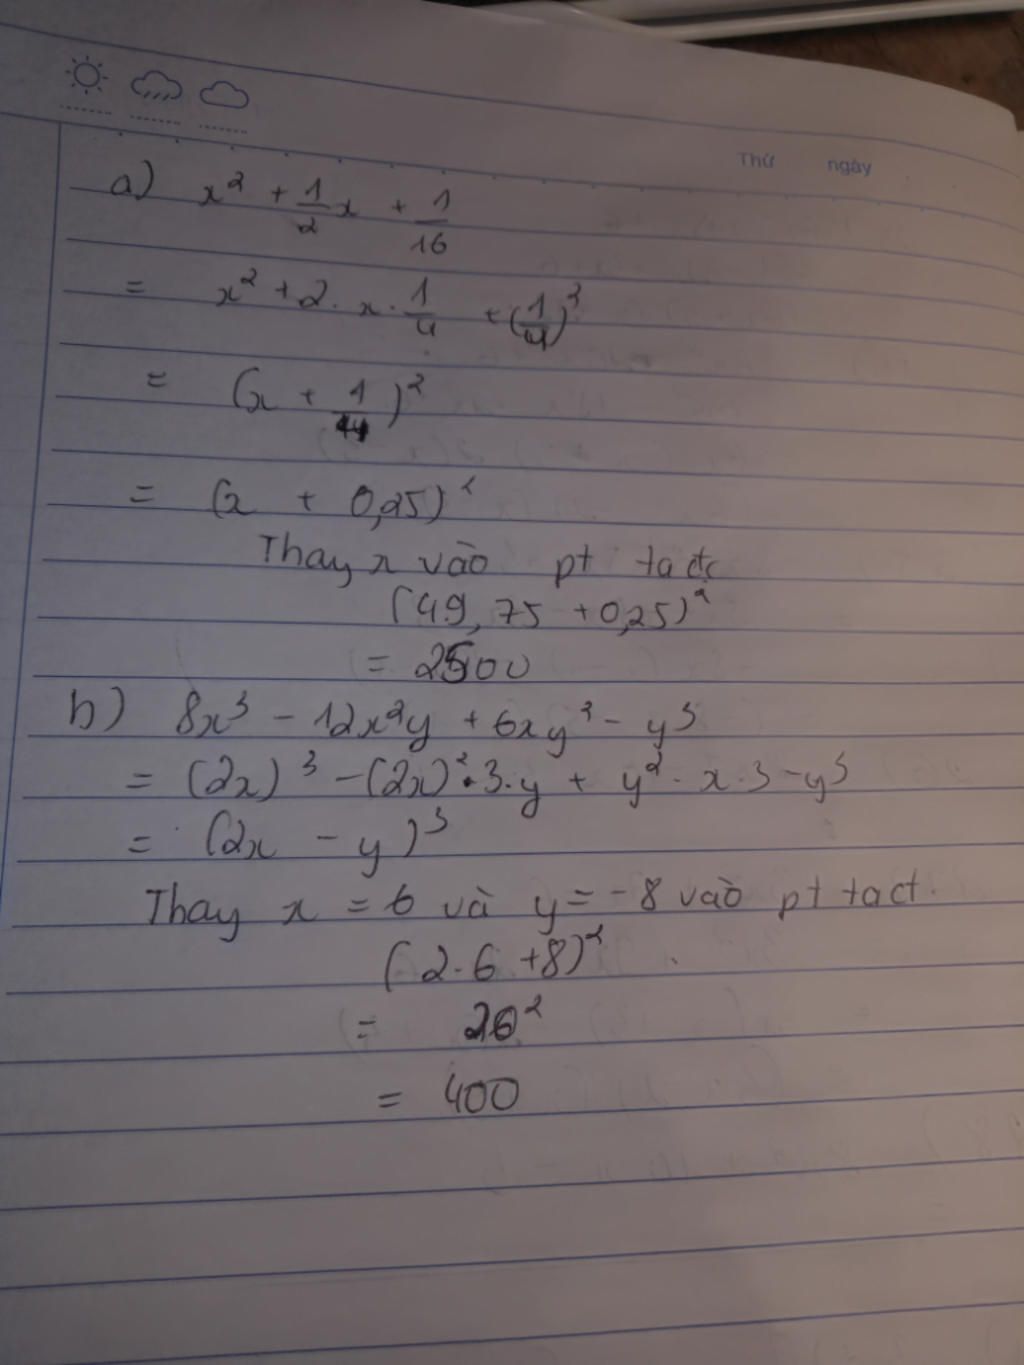 Thứ ngày
a) x² + 1/2 x + 1/16
= x² + 2 . x . 1/4 + (1/4)²
= (x + 1/4)²
= (x + 0,25)²
Thay x vào pt ta đc
(49,75 + 0,25)²
= 2500
b) 8x³ - 12x²y + 6xy² - y³
= (2x)³ - (2x)² . 3 . y + y² . x . 3 - y³
= (2x - y)³
Thay x = 6 và y = -8 vào pt ta ct.
(2 . 6 + 8)²
= 20²
= 400